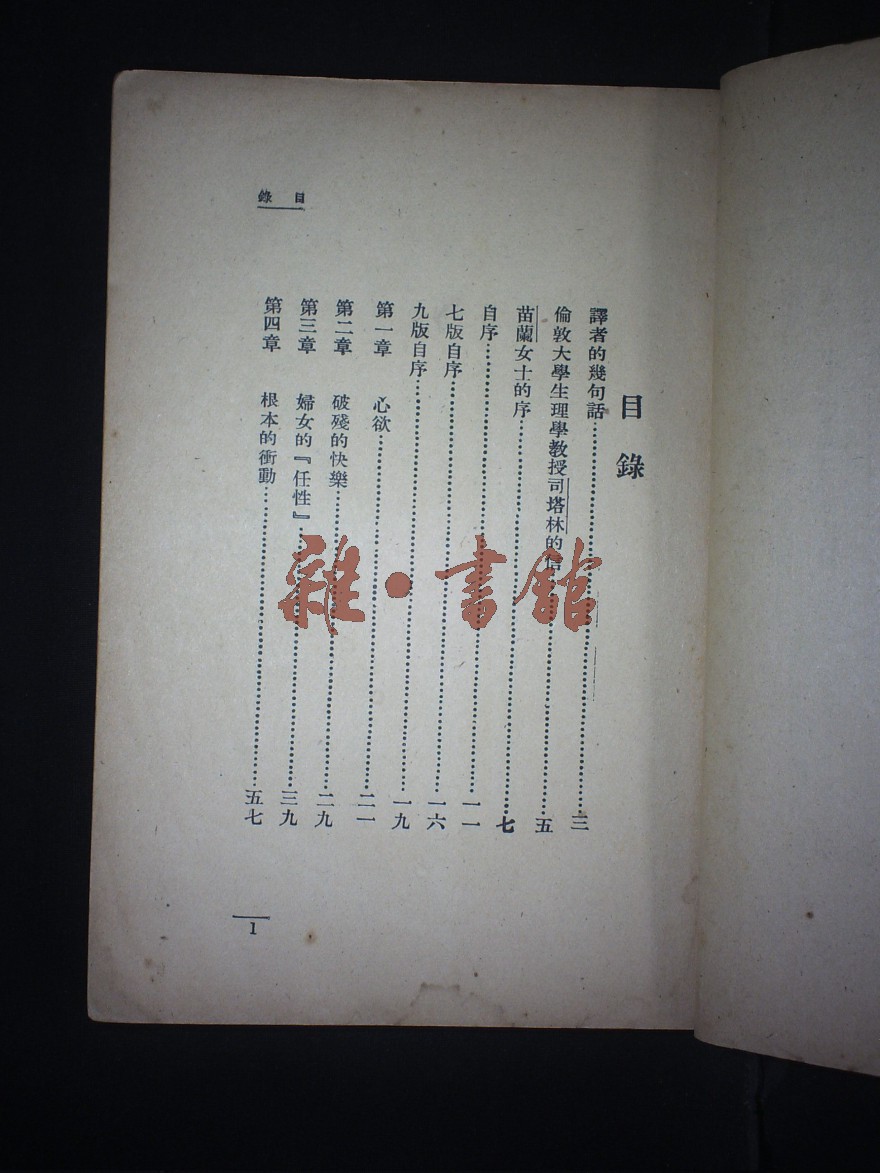 目錄
目錄
譯者的幾句話……三
倫敦大學生理學教授司塔林的信……五
苗蘭女士的序……七
自序……一一
七版自序……一六
九版自序……一九
第一章 心欲……二一
第二章 破殘的快樂……二九
第三章 婦女的『任性』……三九
第四章 根本的衝動……五七
1
雜·書館